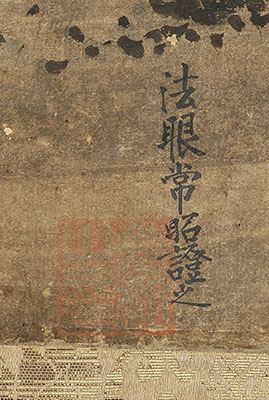 法眼常昭證之